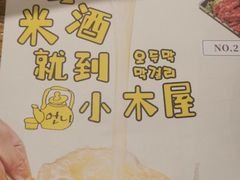 米酒
NO.2
就到
오두막
막걸리
小木屋